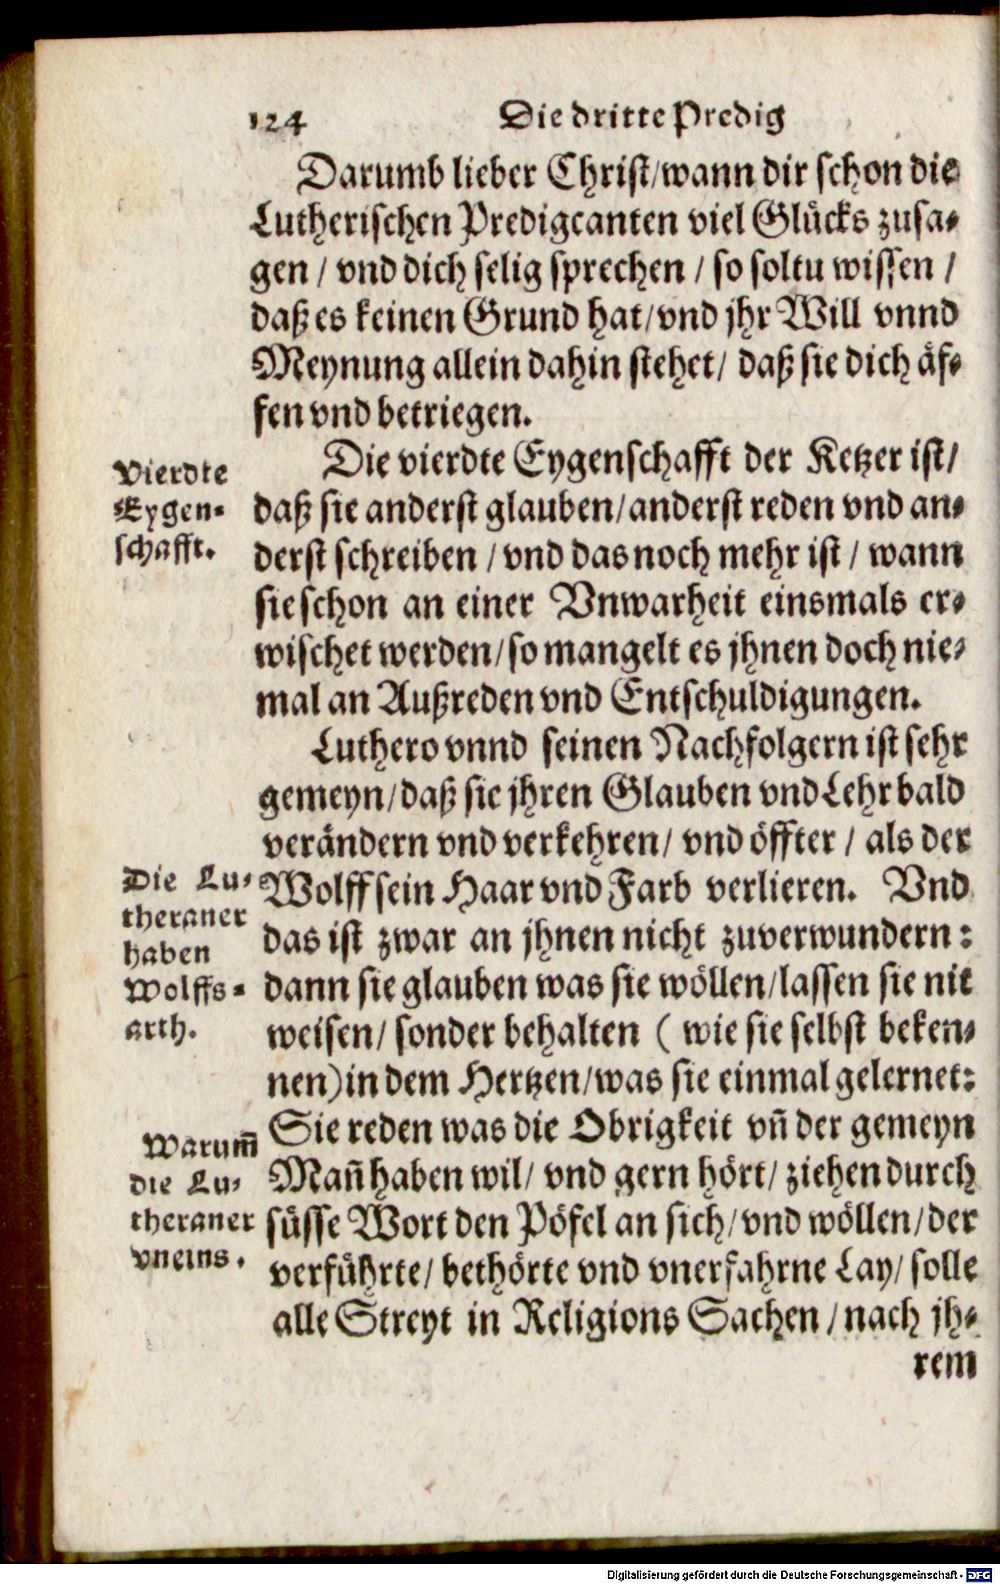 124 Die dritte Predig
Darumb lieber Christ/wann dir schon die
Lutherischen Predigcanten viel Glücks zusa-
gen / vnd dich selig sprechen / so soltu wissen /
daß es keinen Grund hat/vnd jhr Will vnnd
Meynung allein dahin stehet/ daß sie dich äf-
fen vnd betriegen.
Vierdte
Eygen-
schafft.
Die vierdte Eygenschafft der Ketzer ist/
daß sie anderst glauben/anderst reden vnd an-
derst schreiben / vnd das noch mehr ist / wann
sie schon an einer Vnwarheit einsmals er-
wischet werden/so mangelt es jhnen doch nie-
mal an Außreden vnd Entschuldigungen.
Luthero vnnd seinen Nachfolgern ist sehr
gemeyn/daß sie jhren Glauben vnd Lehr bald
verändern vnd verkehren/ vnd öffter / als der
Die Lu-
theraner
haben
Wolffs-
arth.
Wolff sein Haar vnd Farb verlieren. Vnd
das ist zwar an jhnen nicht zuverwundern:
dann sie glauben was sie wöllen/lassen sie nit
weisen/ sonder behalten ( wie sie selbst beken-
nen) in dem Hertzen/was sie einmal gelernet:
Warum̃
die Lu-
theraner
vneins.
Sie reden was die Obrigkeit vñ der gemeyn
Mañ haben wil/ vnd gern hört/ ziehen durch
süsse Wort den Pöfel an sich/vnd wöllen/der
verführte/ bethörte vnd vnerfahrne Lay/ solle
alle Streyt in Religions Sachen / nach jh-
rem
Digitalisierung gefördert durch die Deutsche Forschungsgemeinschaft - DFG